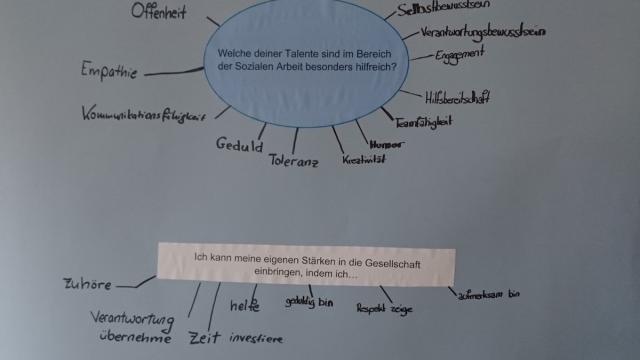 Offenheit
Selbstbewusstsein
Verantwortungsbewusstsein
Engagement
Welche deiner Talente sind im Bereich
der Sozialen Arbeit besonders hilfreich?
Empathie
Hilfsbereitschaft
Kommunikationsfähigkeit
Teamfähigkeit
Geduld
Toleranz
Kreativität
Humor
Ich kann meine eigenen Stärken in die Gesellschaft
einbringen, indem ich...
zuhöre
Verantwortung
übernehme
Zeit investiere
helfe
geduldig bin
Respekt zeige
aufmerksam bin